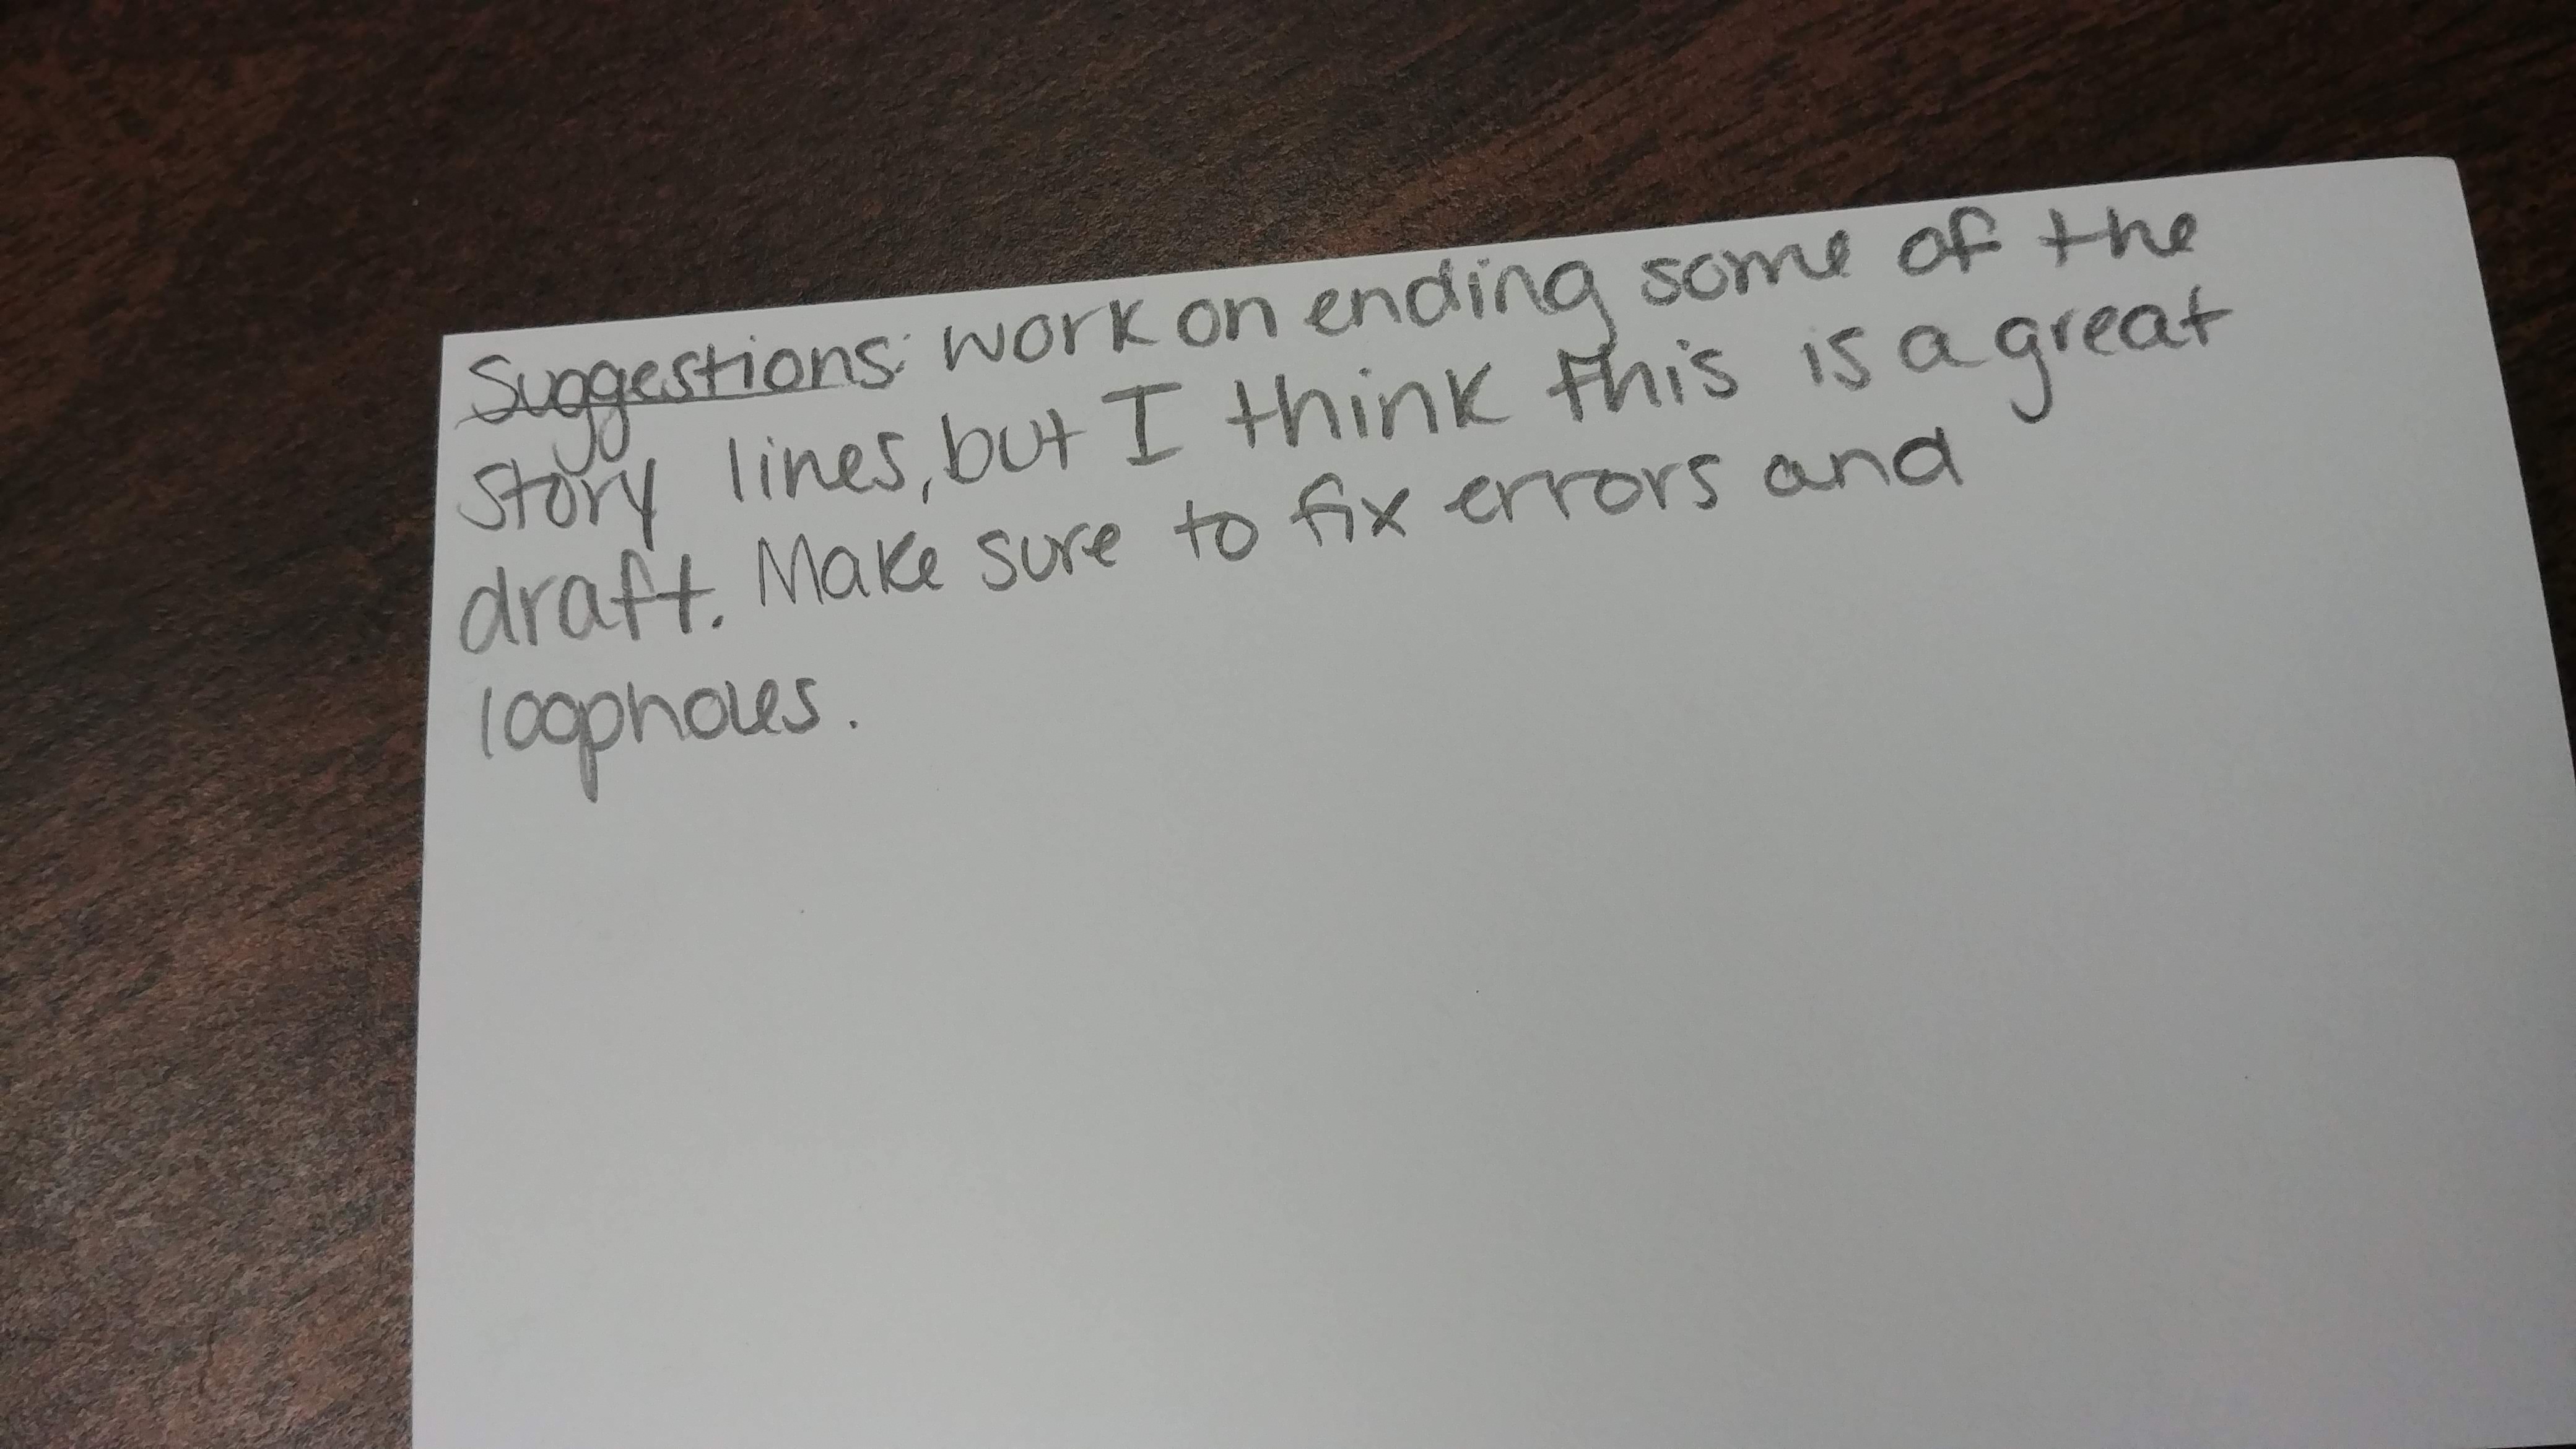 Suggestions: work on ending some of the
story lines, but I think this is a great
draft. Make sure to fix errors and
loopholes.